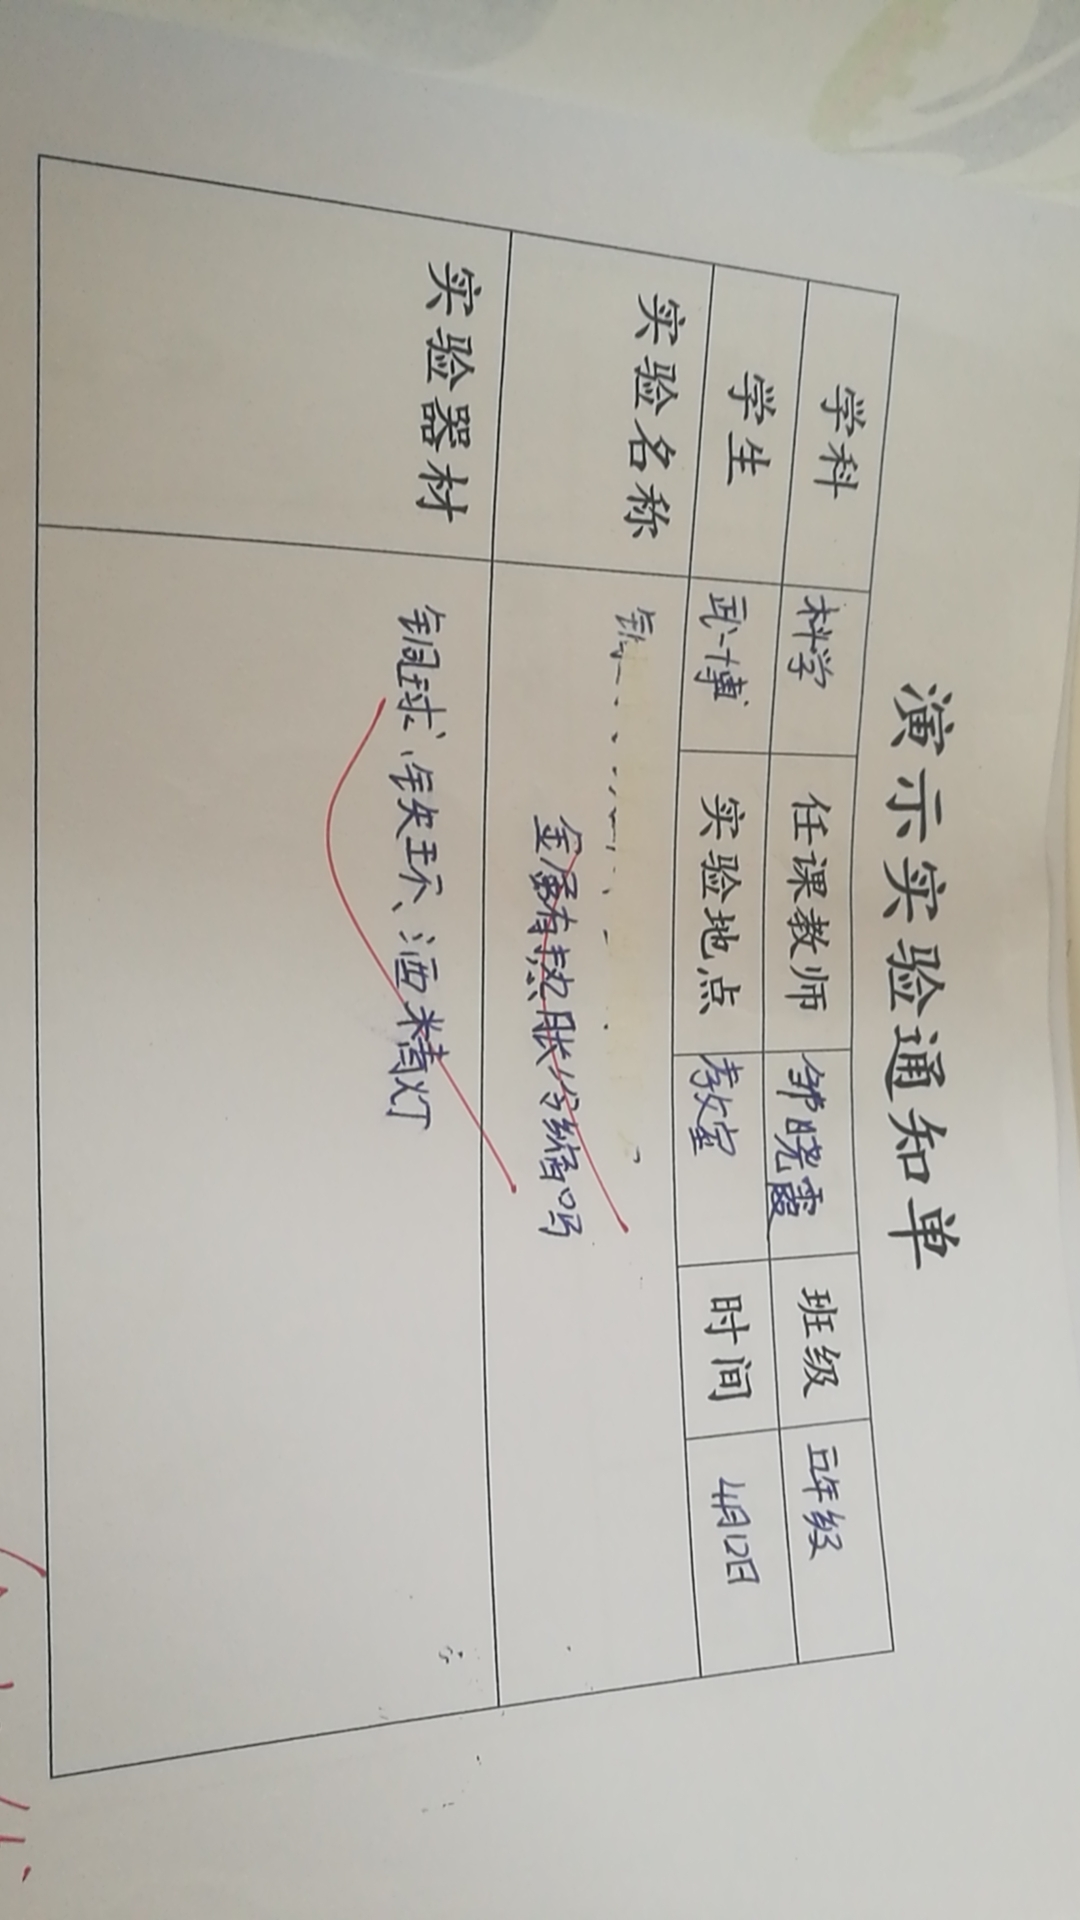 演示实验通知单
学科 科学 任课教师 邹晓霞 班级 五年级
学生 武博 实验地点 教室 时间 4月12日
实验名称
金属有热胀冷缩吗
实验器材 铜球、铁环、酒精灯